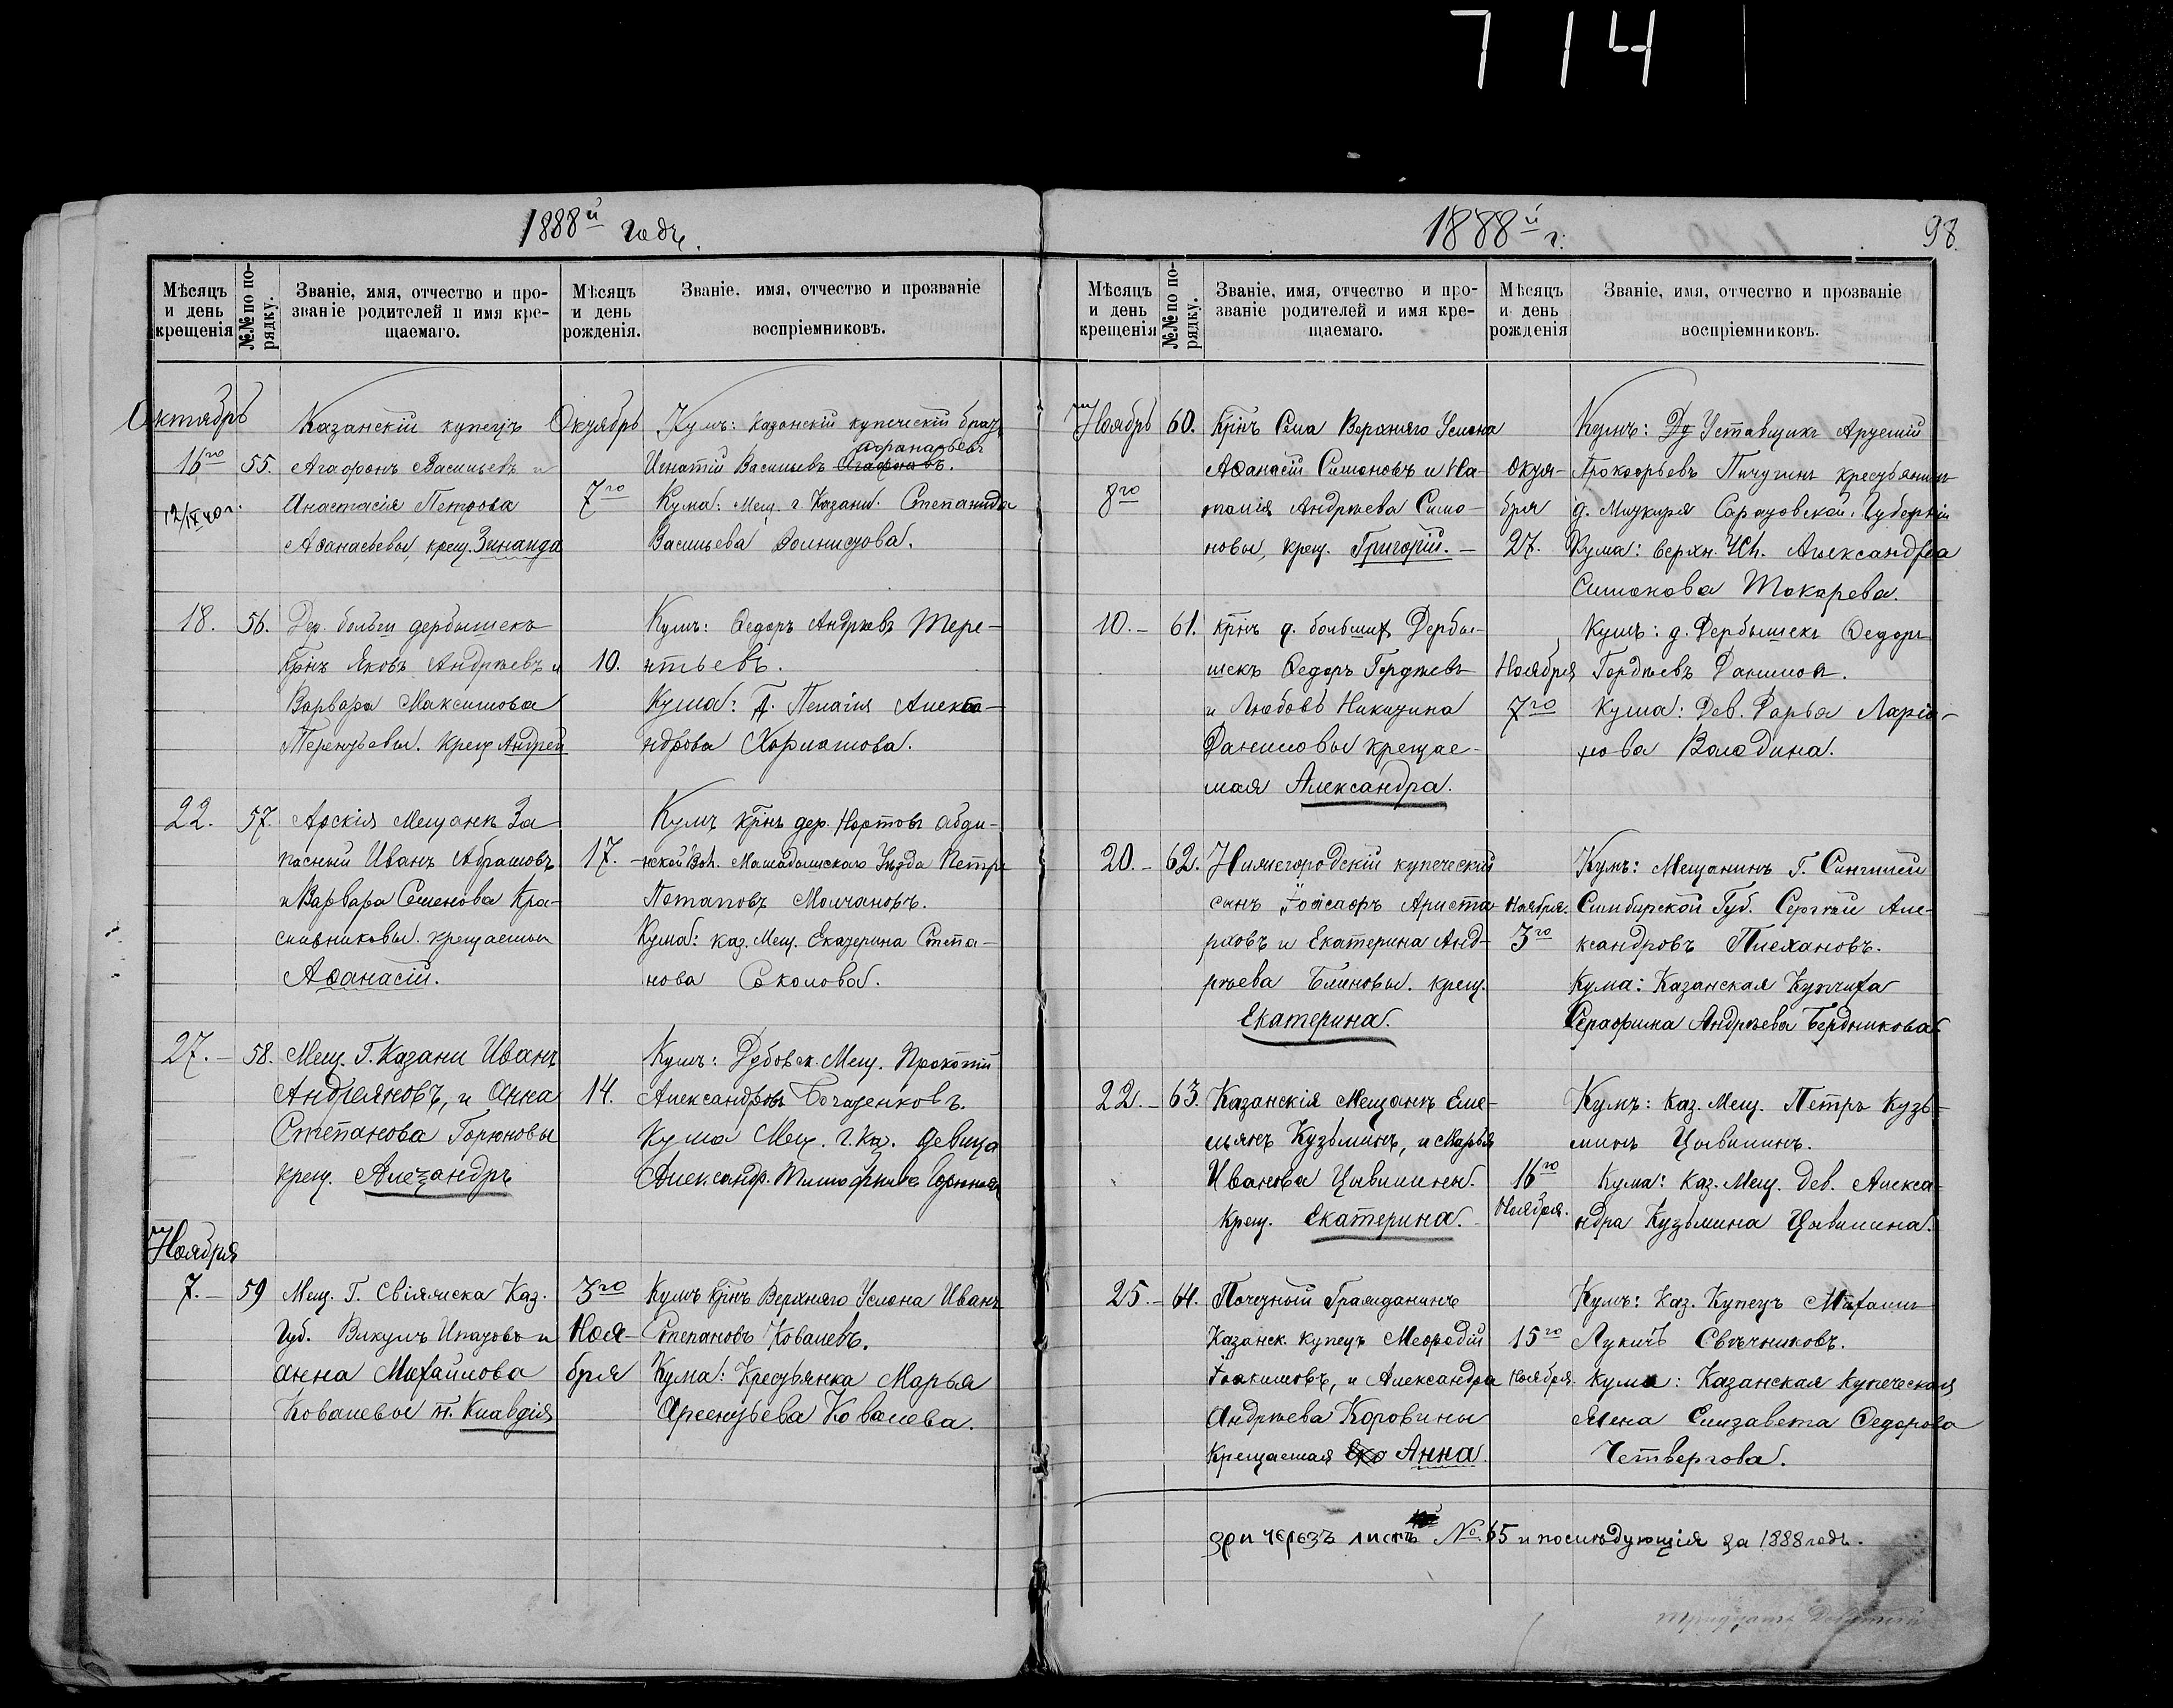 714
1888й годъ.
Мѣсяцъ и день крещенія
№№ по порядку.
Званіе, имя, отчество и про-
званіе родителей и имя кре-
щаемаго.
Мѣсяцъ и день рожденія.
Званіе, имя, отчество и прозваніе
воспріемниковъ.
Октябрь
16го
12/IX 40 г.
55.
Казанскій купецъ
Агафонъ Васильевъ и
Анастасія Петрова
Аѳанасьевы, крещ. Зинаида
Октябрь
7го
Кумъ: Казанскій купеческій братъ
Игнатій Васильевъ Агафоновъ.
Кума: Мещ. г. Казани. Степанида
Васильева
18.
56.
Дер. больш дербышекъ
Крнъ Яковъ Андрѣевъ и
Варвара Максимова
Терентьевы. крещ Андрей
10.
Кумъ: Ѳедоръ Андрѣевъ Тере-
нтьевъ.
Кума: Д. Пелагія Алекса-
ндрова Харламова.
22.
57.
Арскія Мещанъ За
пасный Иванъ Абрамовъ
и Варвара Семенова Кра-
сильниковы. крещаемый
Аѳанасій.
17.
Кумъ крнъ дер.
нской Вол. Мамадышскаго Уѣзда Петръ
Потаповъ Молчановъ.
Кума: каз. Мещ. Екатерина Степа-
нова Соколова.
27.
58.
Мещ. Г. Казани Иванъ
Андреяновъ, и Анна
Степанова Горюновы
крещ. Александръ
14.
Кумъ: Дубовск. Мещ. Прокопій
Александровъ
Кума Мещ. г. Каз. девица
Александр. Тимофѣева Горюнова
Ноября
7.
59
Мещ. Г. Свіяжска Каз.
Губ. Викулъ Ипатовъ и
Анна Михайлова
Ковалевы м. Клавдія
3го
Ноя-
бря
Кумъ Крнъ Верхняго Услона Иванъ
Степановъ Ковалевъ.
Кума: Крестьянка Марья
Арсентьева Ковалева.
1888й г.
98.
Мѣсяцъ и день крещенія
№№ по порядку.
Званіе, имя, отчество и про-
званіе родителей и имя кре-
щаемаго.
Мѣсяцъ и день рожденія
Званіе, имя, отчество и прозваніе
воспріемниковъ.
Ноябрь
8го
60.
Крнъ Села Верхняго Услона
Аѳанасій Симоновъ и На-
талія Андрѣева Симо-
новы, крещ. Григорій.
Октя-
бря
27.
Кумъ: Уставщикъ
Прокофьевъ Пичугинъ крестьянинъ
д. Саратовской Губерніи
Кума: верхн. Усл. Александра
Симонова Токарева.
10.
61.
крнъ д. большихъ Дербы-
шекъ Ѳедоръ Гордѣевъ
и Любовь Никитина
Даниловы крещае-
мая Александра.
Ноября
7го
Кумъ: д. Дербышекъ Ѳедоръ
Гордѣевъ Даниловъ.
Кума: Дев. Дарья Ларіо-
нова Володина.
20.
62.
Нижегородскій купеческій
сынъ Іоасафъ Ариста-
рховъ и Екатерина Анд-
рѣева Блиновы. крещ.
Екатерина.
Ноября.
3го
Кумъ: Мещанинъ Г. Сингилей
Симбирской Губ. Сергѣй Але-
ксандровъ Плехановъ.
Кума: Казанская Купчиха
Серафима Андрѣева Бердникова
22.
63.
Казанскія Мещанъ Еме-
льянъ Кузьминъ, и Марья
Иванова Цывилины.
Крещ. Екатерина.
16го
Ноября.
Кумъ: Каз. Мещ. Петръ Кузь-
минъ Цывилинъ.
Кума: Каз. Мещ. Дев. Алекса-
ндра Кузьмина Цывилина.
25.
64.
Почетный Гражданинъ
Казанск. купецъ Меѳодій
Іоакимовъ, и Александра
Андрѣева Коровины
Крещаемая Анна.
15го
Ноября.
Кумъ: Каз. Купецъ Михаилъ
Лукичъ Свѣчниковъ.
Кума: Казанская Купеческая
Жена Елизавета Ѳедорова
Четвергова.
зри черезъ листъ № 65 и послѣдующія за 1888 годъ.